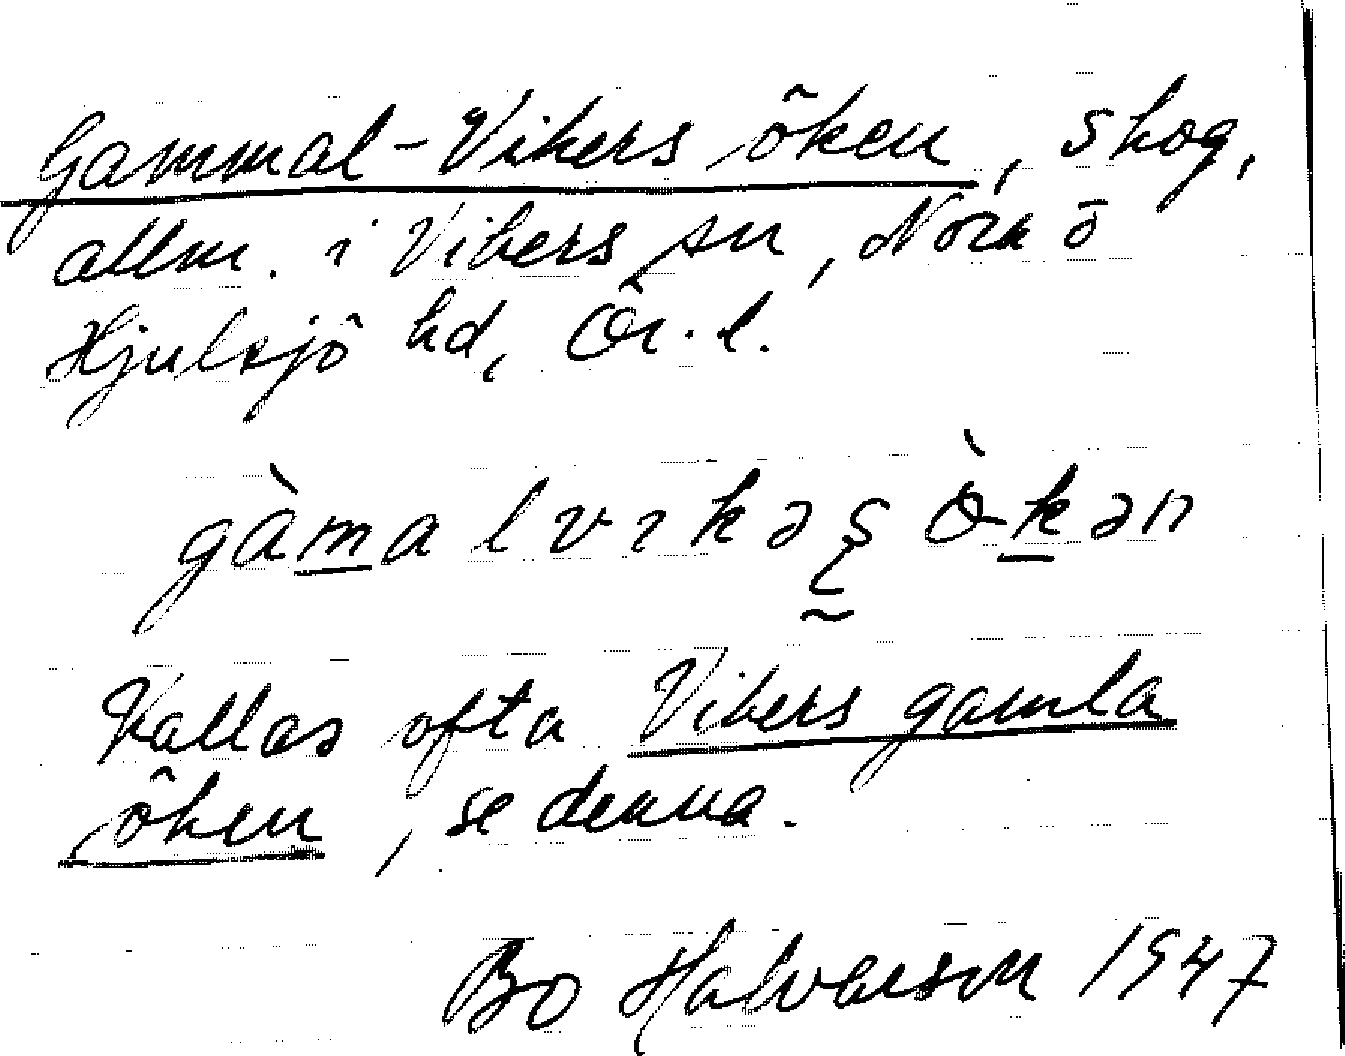 Gammal-Vikers öken, skog,
allm. i Vikers sn, Nora o
Hjulsjö hd, Ör. l.
gàmalvıkəʂ ò̵kən
Kallas ofta Vikers gamla
öken, se denna.
Bo Halvarson 1947